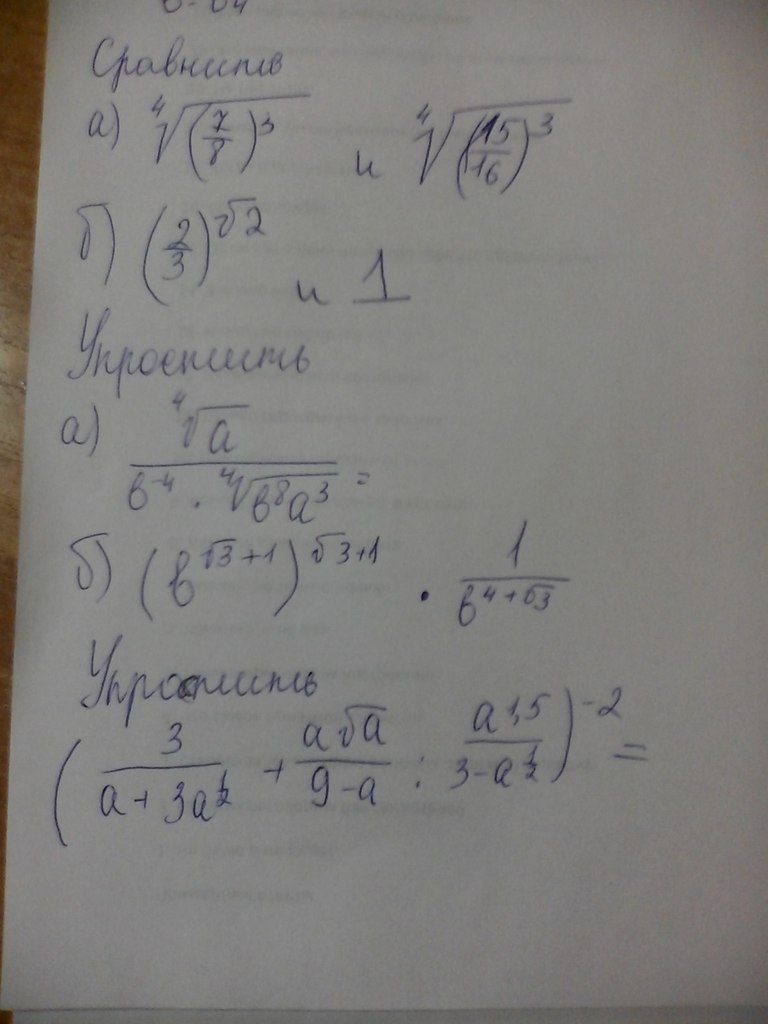 Сравнить
а) ⁴√(7/8)³ и ⁴√(15/16)³
б) (2/3)^√2 и 1
Упростить
а) ⁴√a / (b⁻⁴ · ⁴√(b⁸a³)) =
б) (b^(√3+1))^(√3+1) · 1/b^(4+√3)
Упростить
(3/(a+3a^(1/2)) + a√a/(9-a) : a^1,5/(3-a^(1/2)))^-2 =